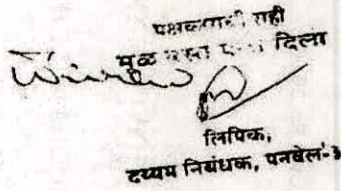 पक्षकाराची सही
मुळ दस्त परत दिला
लिपिक,
दुय्यम निबंधक, पनवेल-३